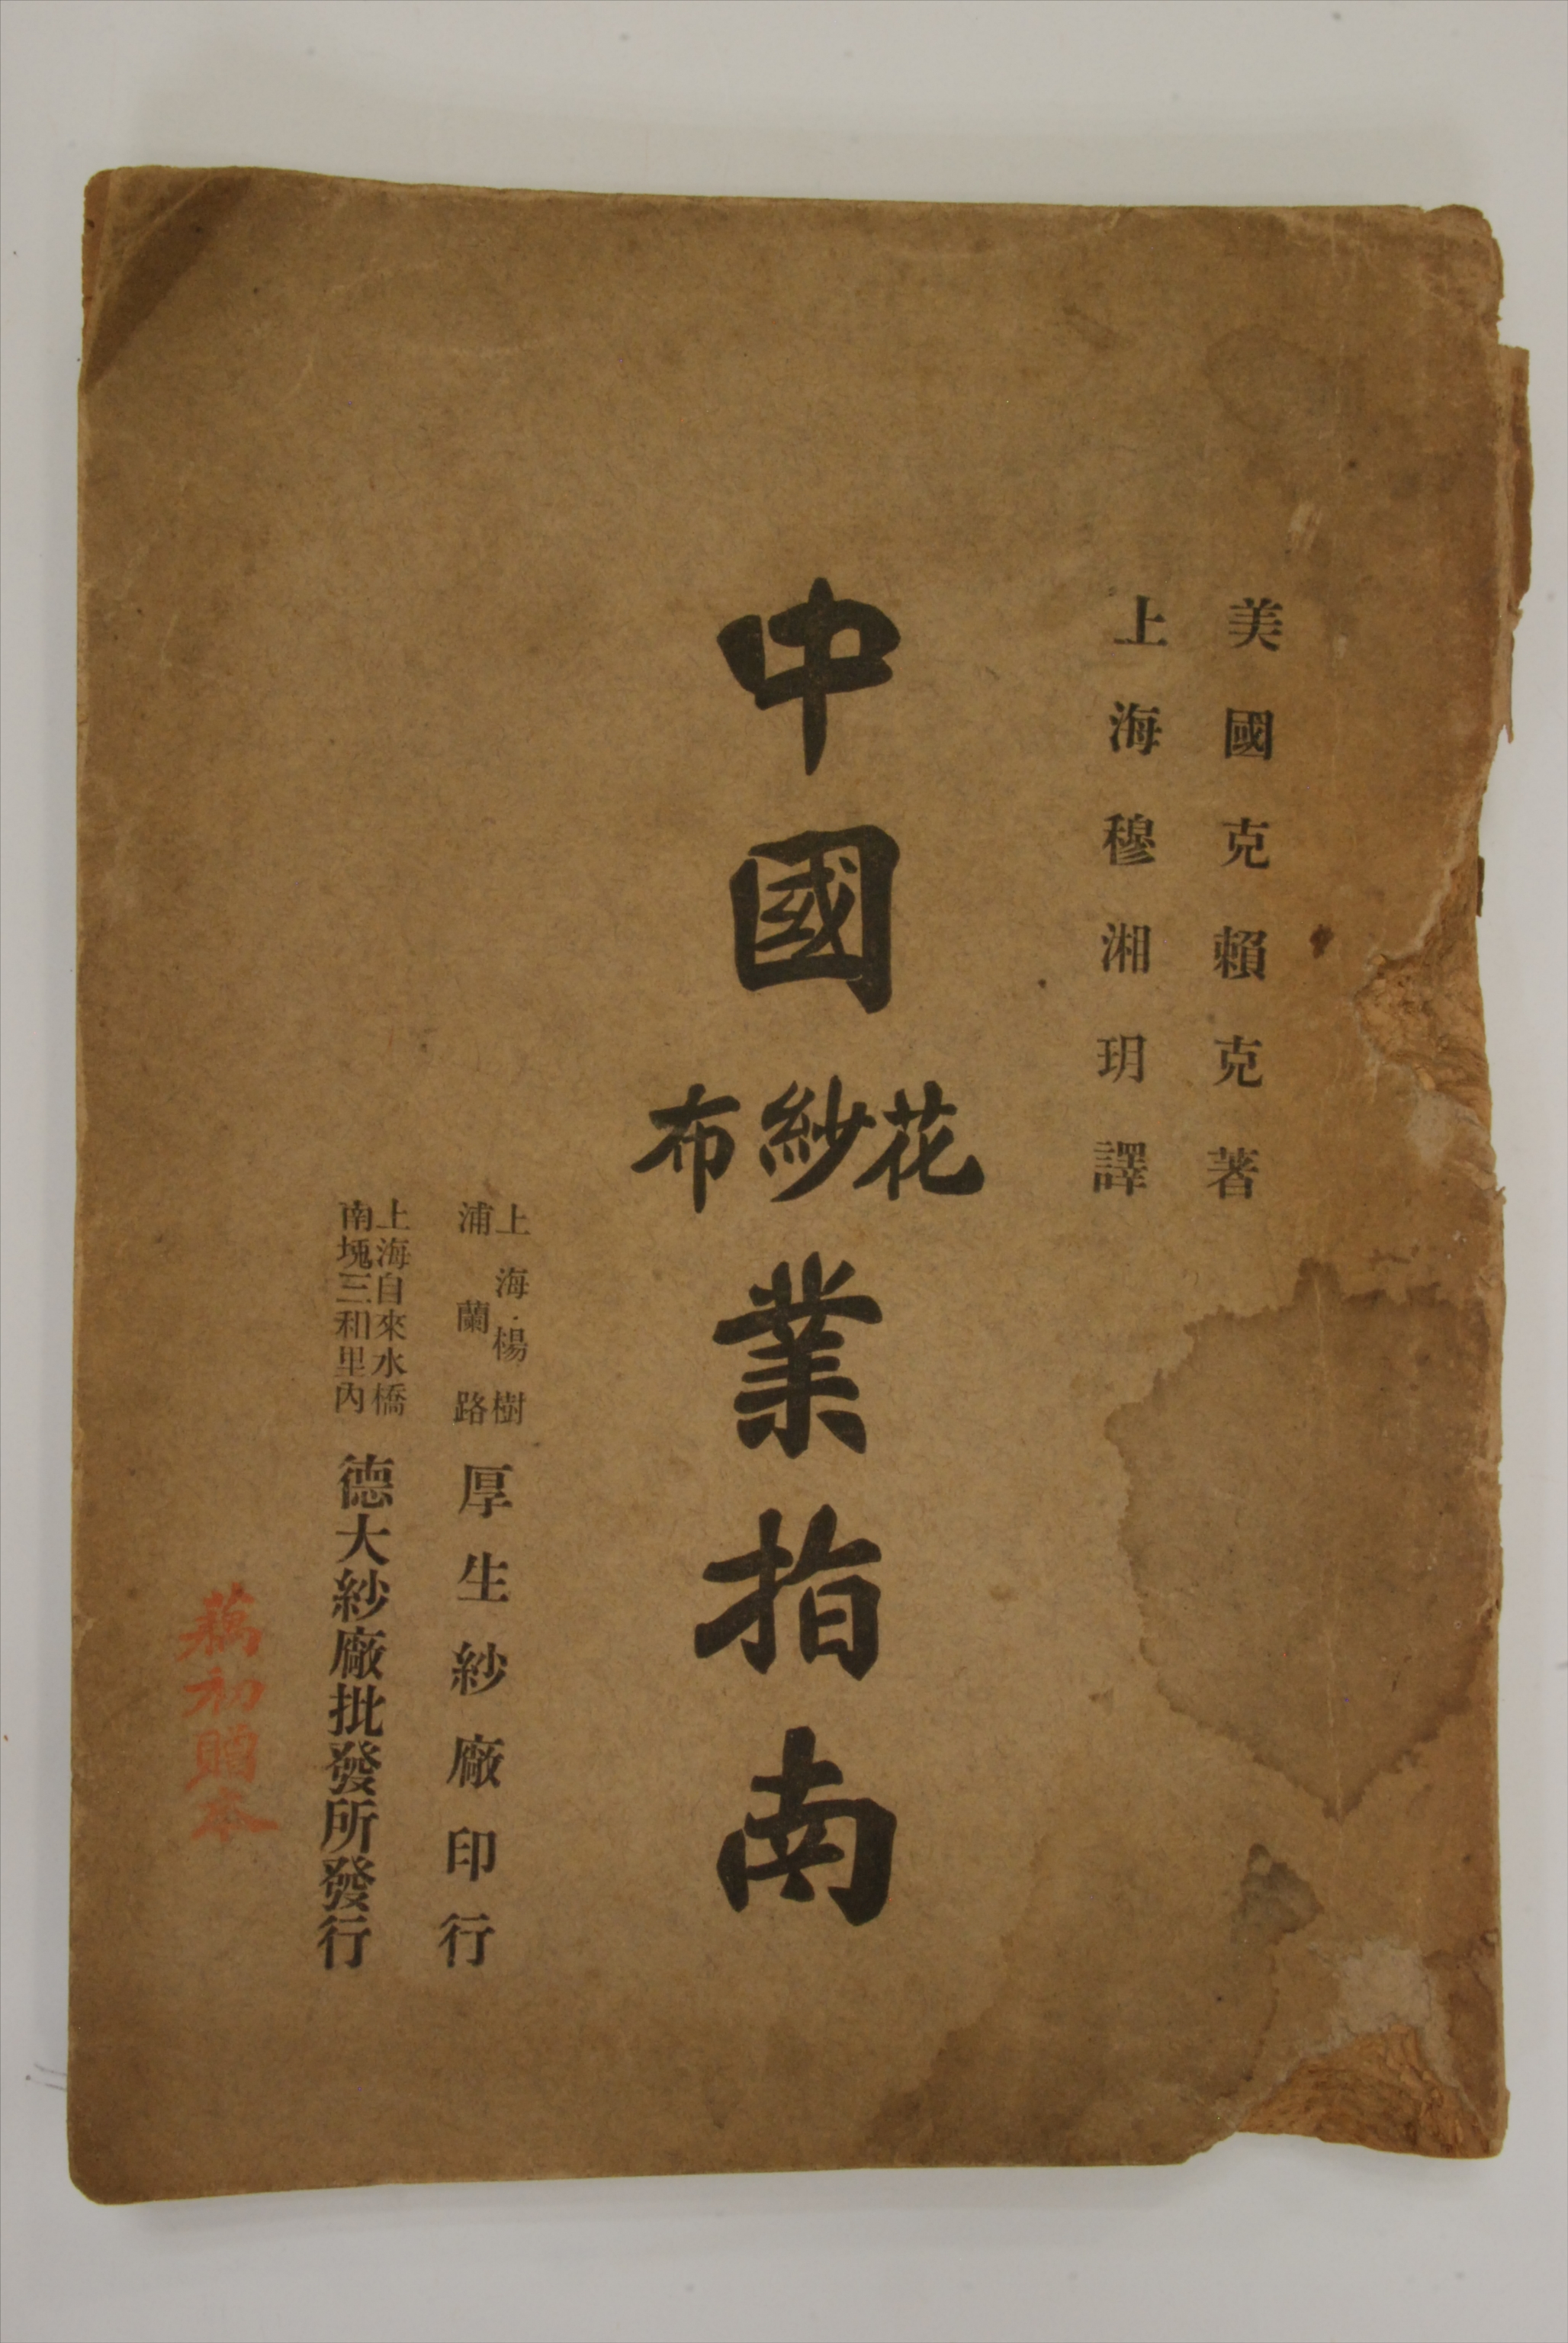 美國克賴克著
上海穆湘玥譯
中國花紗布業指南
上海楊樹浦蘭路
厚生紗廠印行
上海自來水橋南堍三和里內
德大紗廠批發所發行
藕初贈本